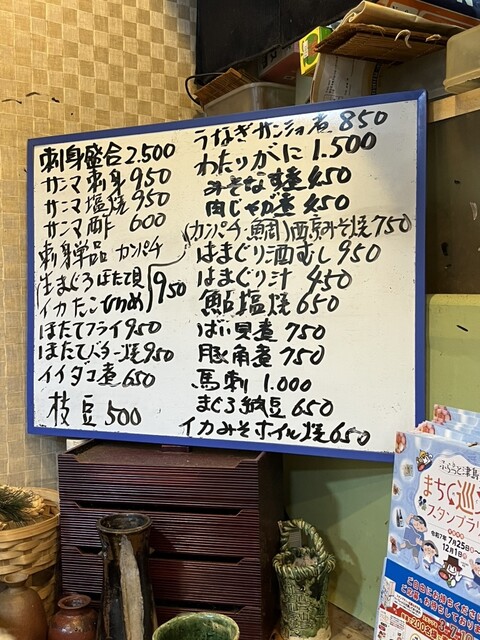 刺身盛合 2.500
サンマ刺身 950
サンマ塩焼 950
サンマ酢 600
刺身単品 カンパチ
生まぐろ ほたて貝
イカ たこ ひらめ 950
ほたてフライ 950
ほたてバター焼 950
イイダコ煮 650
枝豆 500
うなぎサンショ煮 850
わたりがに 1.500
みそなす煮 450
肉じゃが煮 450
(カンパチ・鯛)西京みそ焼 750
はまぐり酒むし 950
はまぐり汁 450
鮎塩焼 650
ばい貝煮 750
豚角煮 750
馬刺 1.000
まぐろ納豆 650
イカみそホイル焼 650
ふらっと津島
まちぐ巡
スタンプラリ
令和7年 7月25日
12月1日
ご自由にお持ちください